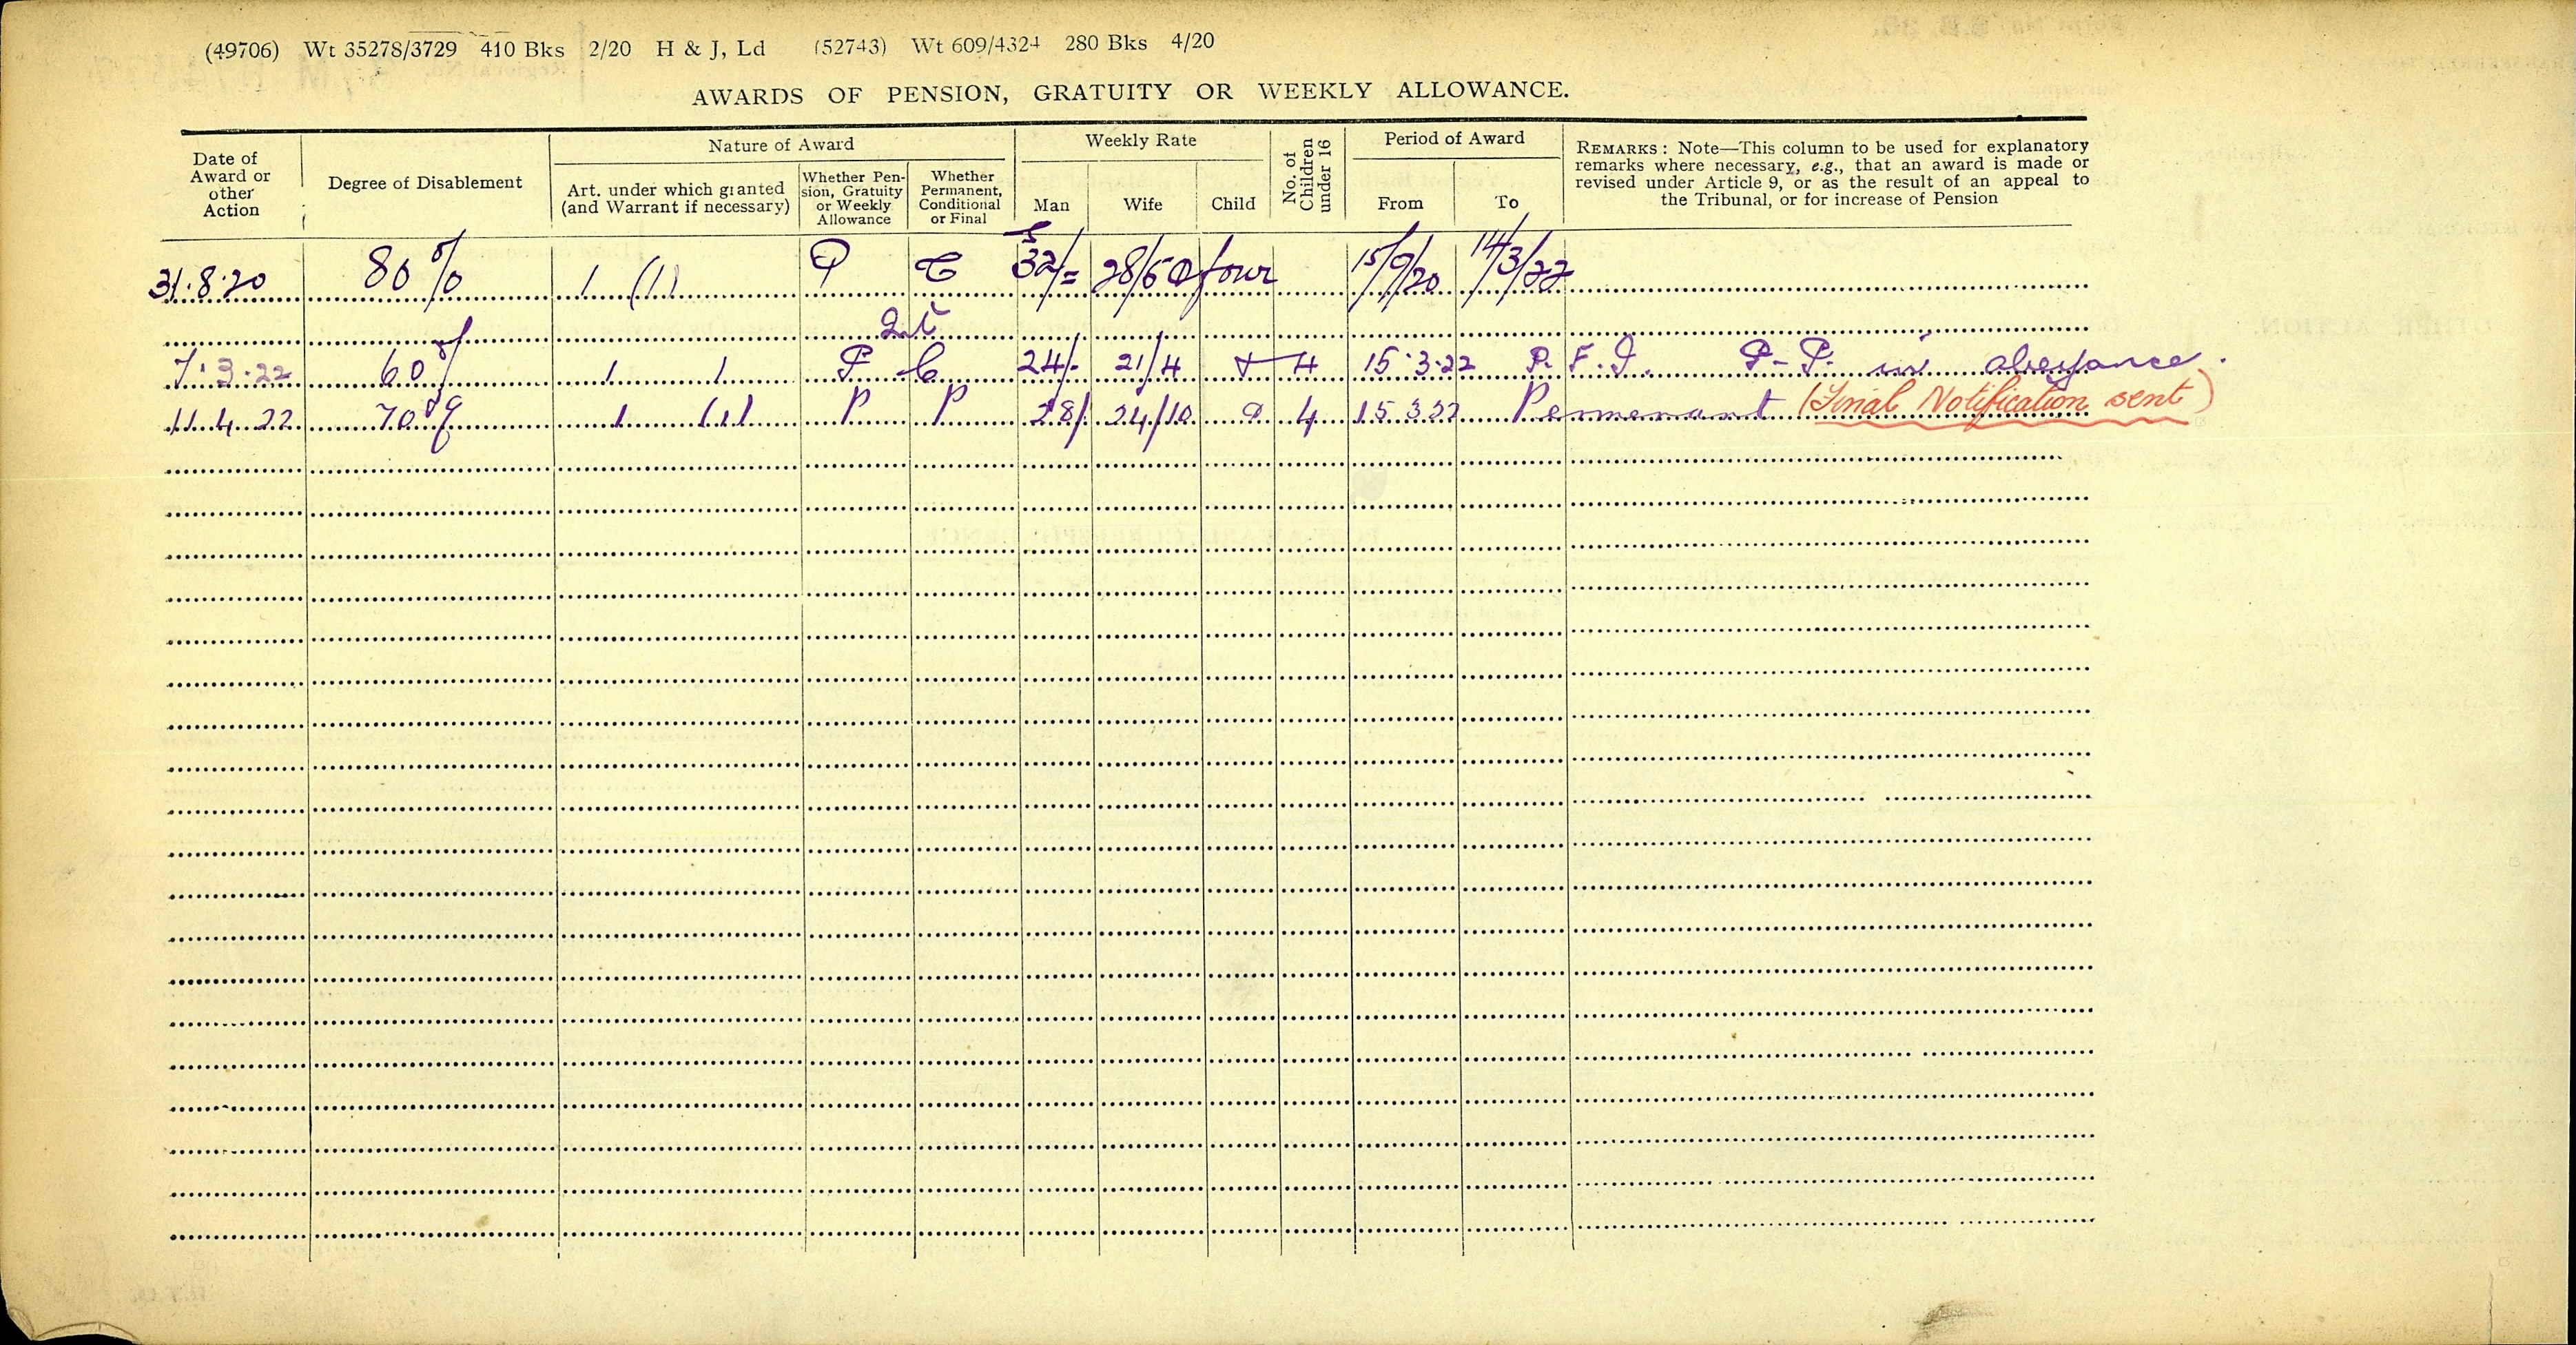 (49706) Wt 35278/3729 410 Bks 2/20 H & J, Ld (52743) Wt 609/4324 280 Bks 4/20
AWARDS OF PENSION, GRATUITY OR WEEKLY ALLOWANCE.
Date of Award or other Action
Degree of Disablement
Nature of Award
Art. under which granted (and Warrant if necessary)
Whether Pension, Gratuity or Weekly Allowance
Whether Permanent, Conditional or Final
Weekly Rate
Man
Wife
Child
No. of Children under 16
Period of Award
From
To
REMARKS: Note—This column to be used for explanatory
remarks where necessary, e.g., that an award is made or
revised under Article 9, or as the result of an appeal to
the Tribunal, or for increase of Pension
31.8.20 80% 1 (1) P C 32/= 28/6 four 15/9/20 14/3/22
7.3.22 60% 1 1 P C 24/- 21/4 4 15.3.22 P-P. in abeyance.
11.4.22 70% 1 (1) P P 28/ 24/10 4 15.3.22 Permanant (Final Notification sent)